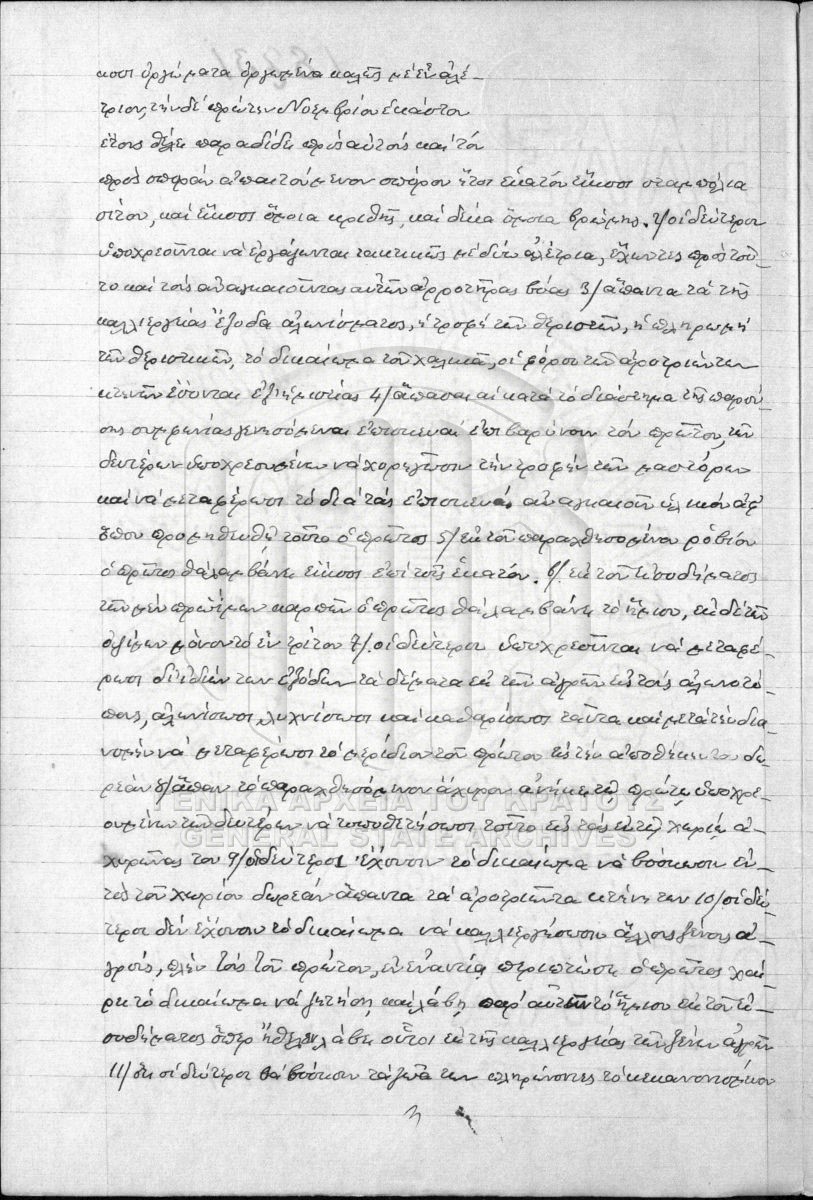 κοσι ὀργώματα ὀργωμένα καλῶς μὲ ἓν ἀλέ-
τριον, τὴν δὲ πρώτην Νοεμβρίου ἑκάστου
ἔτους θέλει παραδίδει πρὸς αὐτοὺς καὶ τὸν
πρὸς σπορὰν ἀπαιτούμενον σπόρον ἤτοι ἑκατὸν εἴκοσι σταμπόλια
σίτου, καὶ εἴκοσι ὅμοια κριθῆς, καὶ δέκα ὅμοια βρώμης. 2/ οἱ δεύτεροι
ὑποχρεοῦνται νὰ ἐργάζωνται τακτικῶς μὲ δύο ἀλέτρια, ἔχωντες πρὸς τοῦ-
το καὶ τοὺς ἀναγκαιοῦντας αὐτῶν ἀρροτῆρας βόας 3/ ἅπαντα τὰ τῆς
καλλιεργείας ἔξοδα ἁλωνίσματος, ἡ τροφὴ τῶν θεριστῶν, ἡ πληρωμὴ
τῶν θεριστικῶν, τὸ δικαίωμα τοῦ χαλικᾶ, οἱ φόροι τῶν ἀροτριώντων
κτηνῶν ἔσονται ἐξ ἡμισείας 4/ ἅπασαι αἱ κατὰ τὸ διάστημα τῆς παρού-
σης συμφωνίας γενησόμεναι ἐπισκευαὶ ἐπιβαρύνουν τὸν πρῶτον, τῶν
δευτέρων ὑποχρεουμένων νὰ χορηγῶσιν τὴν τροφὴν τῶν μαστόρων
καὶ νὰ μεταφέρωσι τὸ διὰ τὰς ἐπισκευὰς ἀναγκαιοῦν ὑλικὸν ἀφ'
ὅπου προμηθευθῇ τοῦτο ὁ πρῶτος 5/ ἐκ τοῦ παραχθησομένου ροβίου
ὁ πρῶτος θὰ λαμβάνῃ εἴκοσι ἐπὶ τοῖς ἑκατόν. 6/. ἐκ τοῦ εἰσοδήματος
τῶν μὲν πρωΐμων καρπῶν ὁ πρῶτος θὰ λαμβάνῃ τὸ ἥμισυ, ἐκ δὲ τῶν
ὀψίμων μόνον τὸ ἓν τρίτον 7/. οἱ δεύτεροι ὑποχρεοῦνται νὰ μεταφέ-
ρωσι δι' ἰδίων των ἐξόδων τὰ δέματα ἐκ τῶν ἀγρῶν εἰς τοὺς ἁλωνοτό-
πους, ἁλωνίσωσι, λυχνίσωσι καὶ καθαρίσωσι ταῦτα καὶ μετὰ τὴν δια-
νομὴν νὰ μεταφέρωσι τὸ μερίδιον τοῦ πρώτου εἰς τὴν ἀποθήκην του δω-
ρεάν 8/ ἅπαν τὸ παραχθησόμενον ἄχυρον ἀνήκει τῷ πρώτῳ, ὑποχρε-
ουμένων τῶν δευτέρων νὰ τοποθετήσωσι τοῦτο εἰς τοὺς ἐν τῷ χωρίῳ ἀ-
χυρῶνας του 9/ οἱ δεύτεροι ἔχουσιν τὸ δικαίωμα νὰ βόσκωσιν ἐν-
τὸς τοῦ χωρίου δωρεὰν ἅπαντα τὰ ἀροτριῶντα κτήνη των 10/ οἱ δεύ-
τεροι δὲν ἔχουσιν τὸ δικαίωμα νὰ καλλιεργήσωσιν ἄλλους ξένους ἀ-
γρούς, πλὴν τοὺς τοῦ πρώτου, ἐν ἐναντίᾳ περιπτώσει ὁ πρῶτος χαί-
ρει τὸ δικαίωμα νὰ ζητήσῃ καὶ λάβῃ παρ' αὐτῶν τὸ ἥμισυ ἐκ τοῦ εἰ-
σοδήματος ὅπερ ἤθελεν λάβει οὗτοι ἐκ τῆς καλλιεργείας τῶν ξένων ἀγρῶν
11/ ὅτι οἱ δεύτεροι θὰ βόσκουν τὰ ζῶα των πληρώνοντες τὸ κεκανονισμένον
ΕΝΙΚΑ ΑΡΧΕΙΑ ΤΟΥ ΚΡΑΤΟΥΣ
GENERAL STATE ARCHIVES